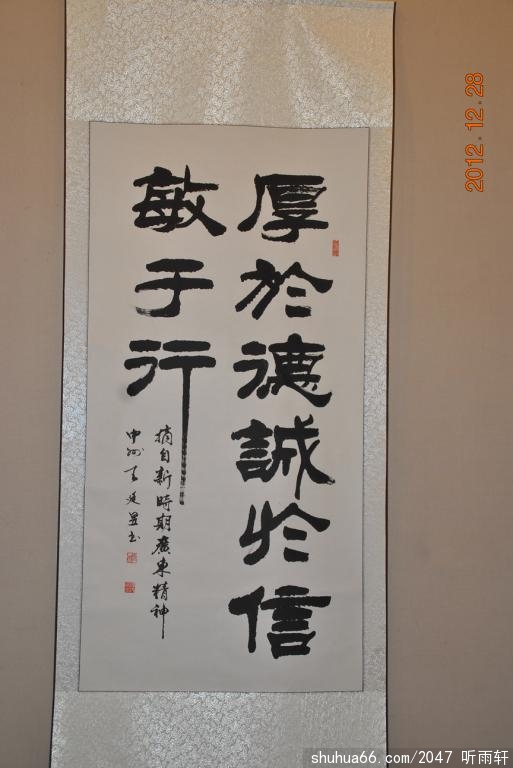 厚於德誠於信
敏于行
摘自新時期廣東精神
中州
書
2012.12.28
shuhua66.com/2047 听雨轩